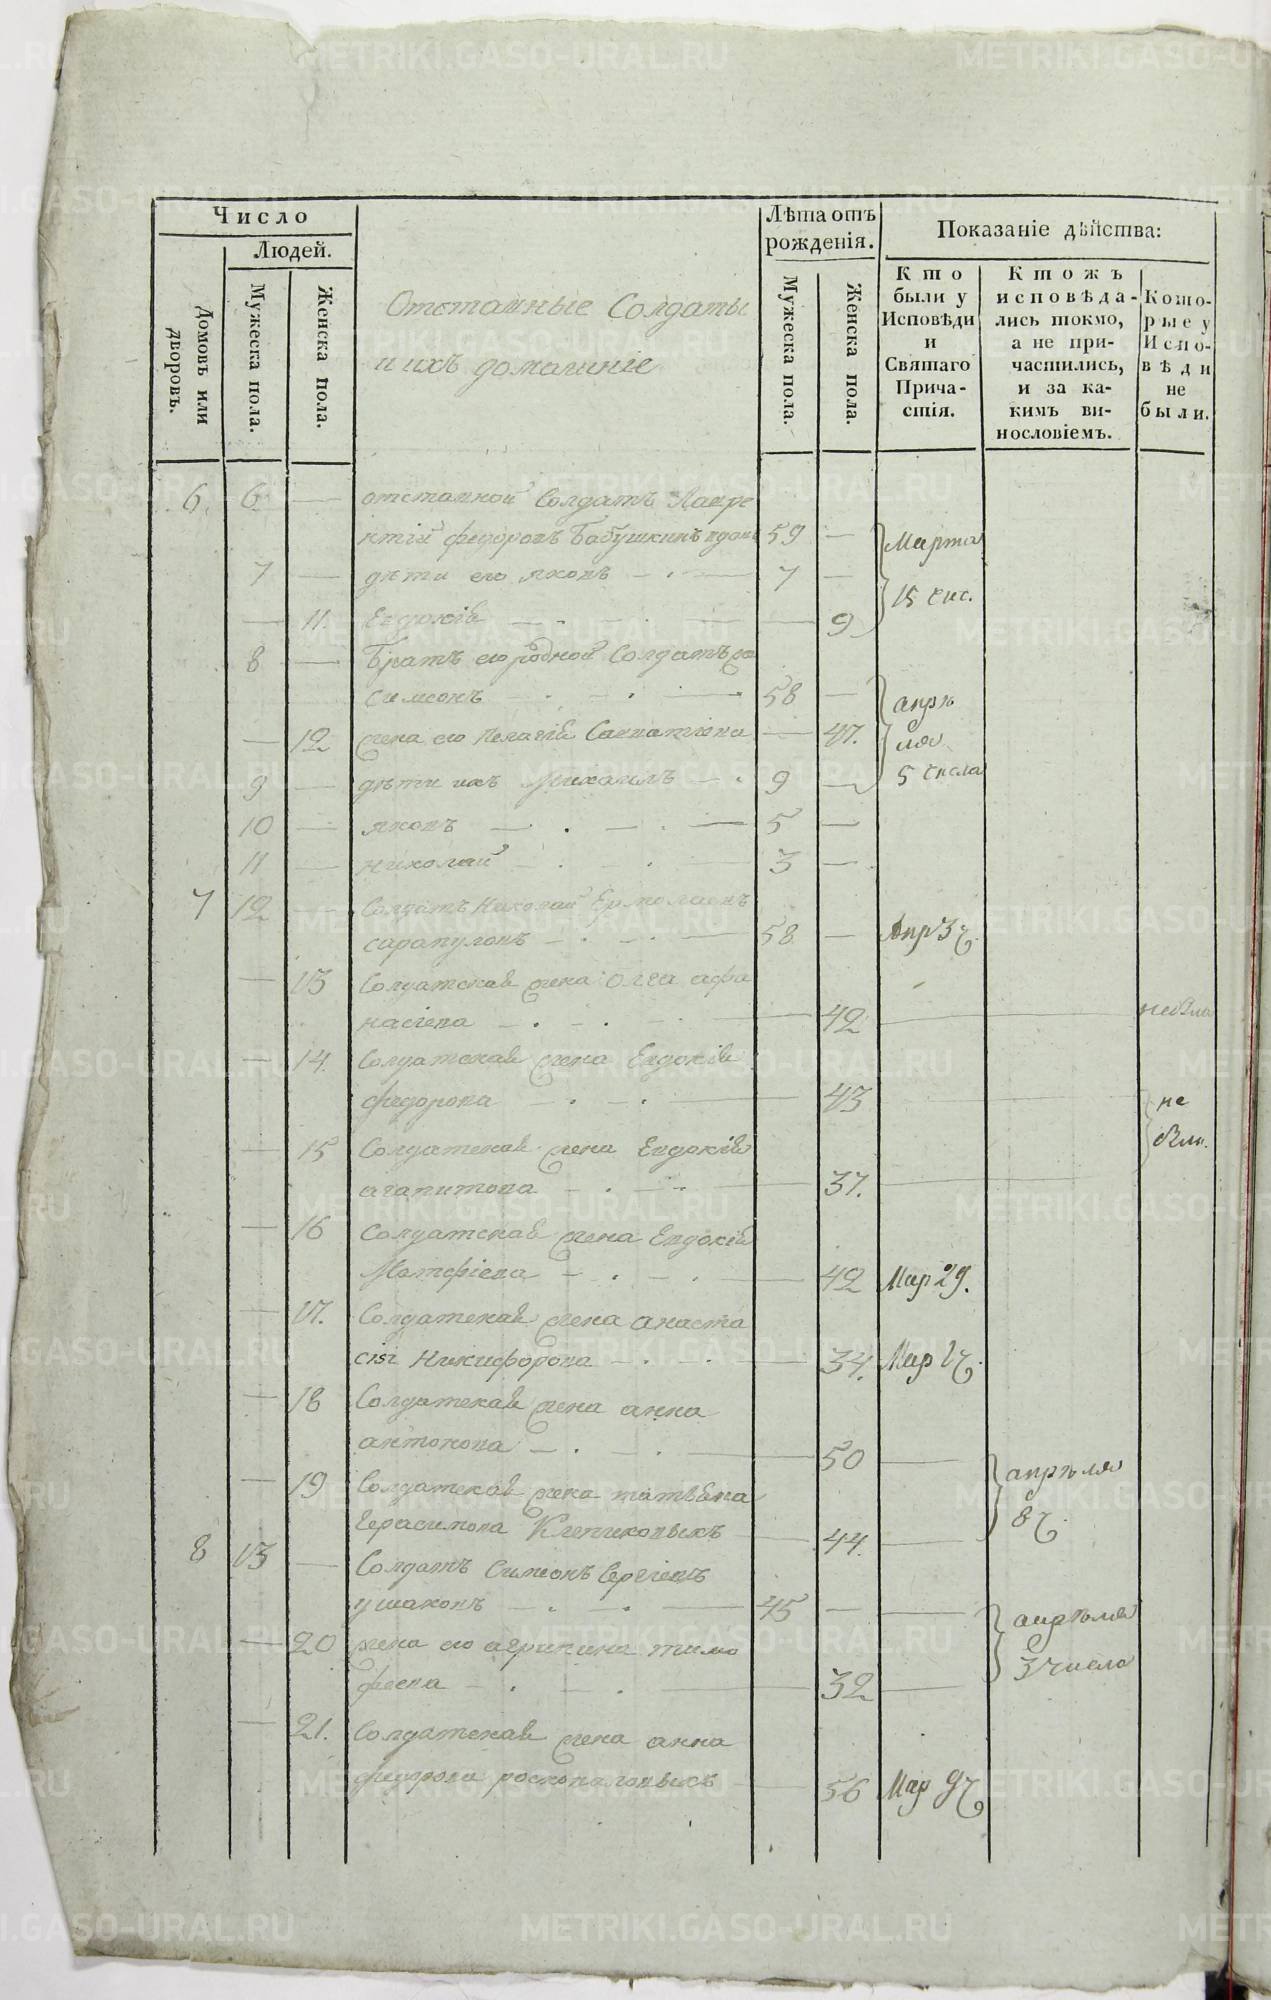 Число
Людей.
Домовъ или дворовъ.
Мужеска пола.
Женска пола.
Отставные Солдаты
и ихъ домашніе
Лѣта отъ
рожденія.
Мужеска пола.
Женска пола.
Показаніе дѣйства:
Кто
были у
Исповѣди
и
Святаго
Прича-
стія.
Ктожъ
исповѣда-
лись токмо,
а не при-
частились,
и за ка-
кимъ ви-
нословіемъ.
Кото-
рые у
Испо-
вѣди
не
были.
6. 6. — отставной Солдатъ Лавре
нтій федоровъ Бабушкинъ вдовъ 59 —
7 — дѣти его яковъ — 7 —
Марта
15 чис.
— 11. Евдокія — — 9
8 — Братъ его родной Солдатъ
симеонъ — 58 —
— 12 жена его пелагія Савватіева — 47.
апрѣ
ля
5 числа
9 — дѣти ихъ Михаилъ — 9 —
10 — яковъ — 5 —
11 — николай — 3 —
7 12 — Солдатъ Николай Ермолаевъ
сарапуловъ — 58 — Апр 3 ч.
— 13 Солдатская жена Олга афа
насіева — 42 — небыла
— 14. Солдатская жена Евдокія
федорова — 43 —
не
были.
— 15 Солдатская жена Евдокія
агапитова — 37. —
— 16 Солдатская жена Евдокія
Матфіева — 42 Мар 29.
— 17. Солдатская жена анаста
сія Никифорова — 34. Мар 2 ч.
— 18 Солдатская жена анна
антонова — 50 —
— 19 Солдатская жена татьяна
герасимова Клепиковыхъ — 44. —
апрѣля
8 ч.
8 13 — Солдатъ Симеонъ Сергіевъ
ушаковъ — 45 — —
— 20 жена его агрипина тимо
феева — 32 —
апрѣля
3 числа
— 21. Солдатская жена анна
федорова росковаловыхъ — 56 Мар 9 ч.
METRIKI.GASO-URAL.RU